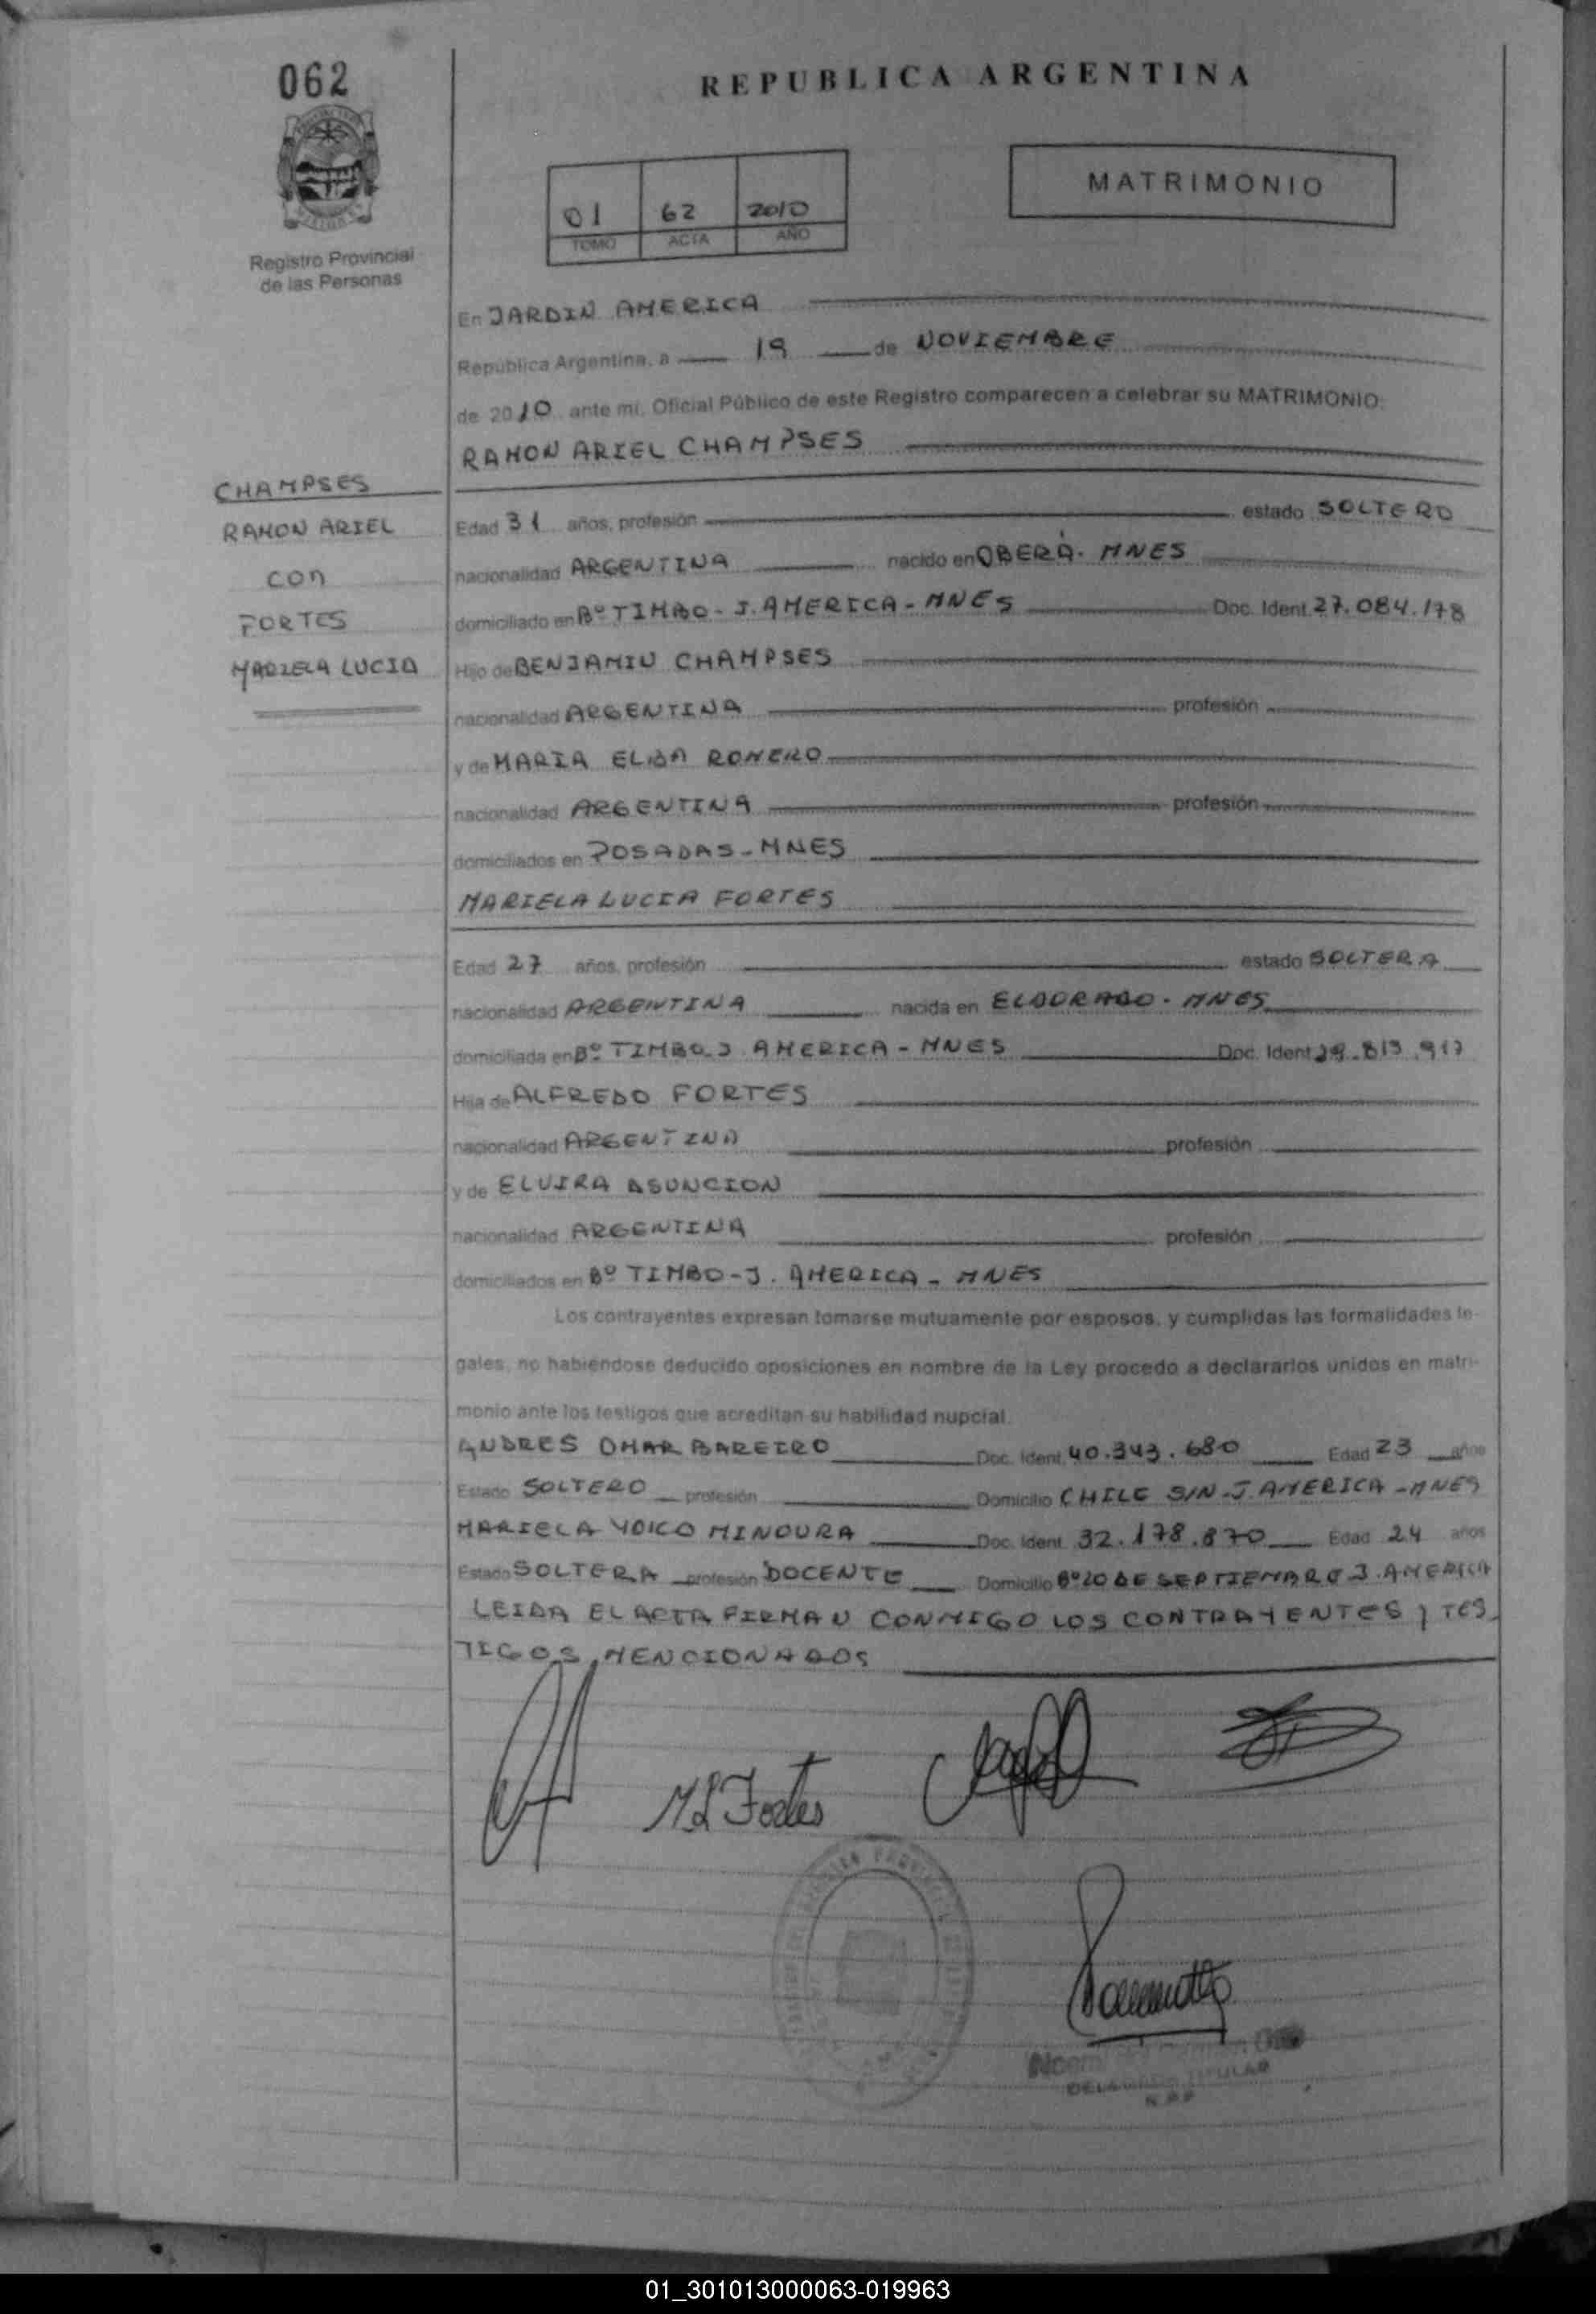 062
REPUBLICA ARGENTINA
MATRIMONIO
01 62 2010
TOMO ACTA AÑO
Registro Provincial
de las Personas
En JARDIN AMERICA
República Argentina, a 19 de NOVIEMBRE
de 2010 ante mí, Oficial Público de este Registro comparecen a celebrar su MATRIMONIO:
RAMON ARIEL CHAMPSES
CHAMPSES
RAMON ARIEL
CON
FORTES
MARIELA LUCIA
Edad 31 años, profesión estado SOLTERO
nacionalidad ARGENTINA nacido en OBERÁ. MNES
domiciliado en Bº TIMBO - J. AMERICA - MNES Doc. Ident. 27.084.178
Hijo de BENJAMIN CHAMPSES
nacionalidad ARGENTINA profesión
y de MARIA ELIDA ROMERO
nacionalidad ARGENTINA profesión
domiciliados en POSADAS - MNES
MARIELA LUCIA FORTES
Edad 27 años, profesión estado SOLTERA
nacionalidad ARGENTINA nacida en ELDORADO - MNES
domiciliada en Bº TIMBO - J AMERICA - MNES Doc. Ident.
Hija de ALFREDO FORTES
nacionalidad ARGENTINA profesión
y de ELVIRA ASUNCION
nacionalidad ARGENTINA profesión
domiciliados en Bº TIMBO - J. AMERICA - MNES
Los contrayentes expresan tomarse mutuamente por esposos, y cumplidas las formalidades le-
gales, no habiéndose deducido oposiciones en nombre de la Ley procedo a declararlos unidos en matri-
monio ante los testigos que acreditan su habilidad nupcial.
ANDRES OMAR BAREIRO Doc. Ident. 40.343.680 Edad 23 años
Estado SOLTERO profesión Domicilio CHILE S/N - J. AMERICA - MNES
MARIELA YOICO MINOURA Doc. Ident. 32.178.870 Edad 24 años
Estado SOLTERA profesión DOCENTE Domicilio Bº 20 DE SEPTIEMBRE J. AMERICA
LEIDA EL ACTA FIRMAN CONMIGO LOS CONTRAYENTES y TES
TIGOS MENCIONADOS
M L Fortes
DELEGADA TITULAR
01_301013000063-019963